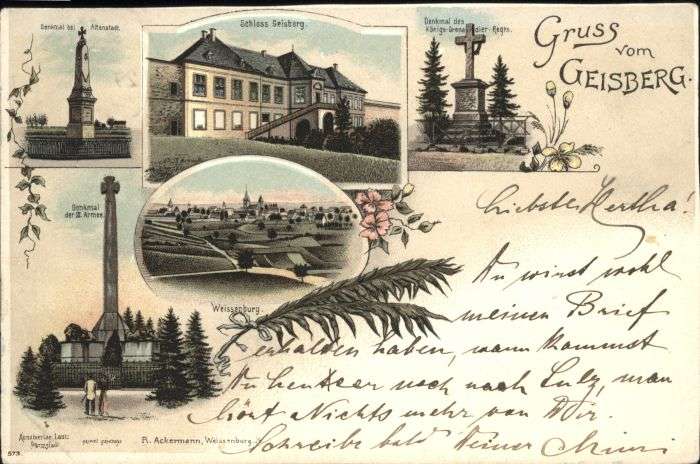 Denkmal bei Altenstadt.
Schloss Geisberg.
Denkmal des
Königs-Grenadier-Regts.
Gruss vom
GEISBERG.
Denkmal
der III. Armee.
Weissenburg.
Liebste Hertha!
Du wirst wohl
meinen Brief
erhalten haben, wann kommst
Du heuer noch nach Sulz, man
hört Nichts mehr von Dir.
Schreibe bald Deiner Mimi
Kunstverlag Lautz
Darmstadt
R. Ackermann, Weissenburg
573